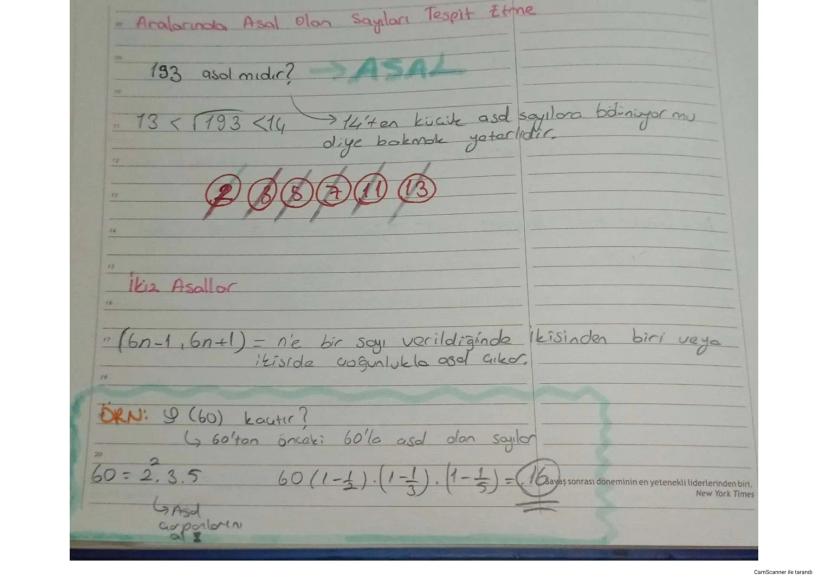 Aralarında Asal Olan Sayıları Tespit Etme
193 asal mıdır? → ASAL
13 < √193 < 14 → 14'ten küçük asal sayılara bölünüyor mu
diye bakmak yeterlidir.
2 3 5 7 11 13
İkiz Asallar
(6n-1, 6n+1) = n'e bir sayı verildiğinde ikisinden biri veya
ikiside çoğunlukla asal çıkar.
ÖRN: φ (60) kaçtır?
↳ 60'tan önceki 60'la asal olan sayılar
60 = 2².3.5 60(1-1/2).(1-1/3).(1-1/5) = 16
savaş sonrası döneminin en yetenekli liderlerinden biri.
New York Times
↳ Asal
çarpanlarını
al
CamScanner ile tarandı